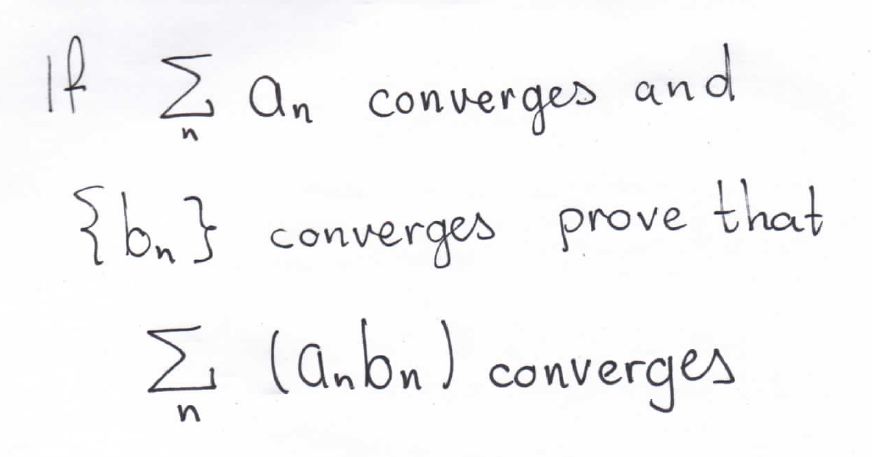 If ∑ₙ aₙ converges and
{bₙ} converges prove that
∑ₙ (aₙbₙ) converges